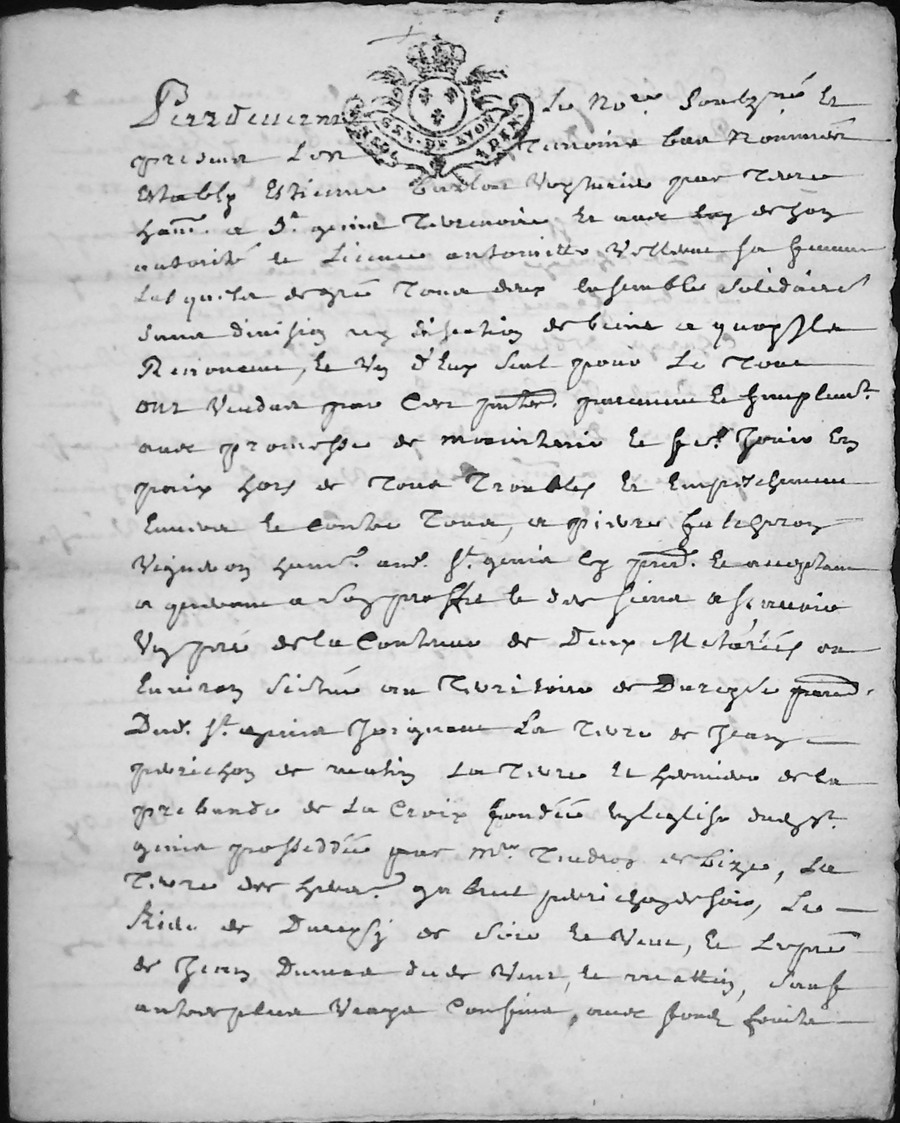 Pardevant Le Nore. Soubzné Et
GEN. DE LYON 4 DEN.
presens Les Tesmoins bas Nommés
Estably Estienne par Terre
hant. a St. genis Terrenoire Et avec luy de son
autorité Et Licence antoinette Vellerut sa femme
Lesquels de gré Tous deux Ensemble Solidairet
Sans division ny discution de biens a quoy Ils
Renoncent, Et Un d'Eux Seul pour Le Tout
ont Vendus par Ces pntes. purement Et simplemt.
avec promesse de maintenir Et fe. Jouir En
paix hors de Tous Troubles Et Empeschemens
Envers Et Contre Tous, a pierre
Vigneron hant. aud. St. genis Cy pnt. Et acceptant
a quivant a Son proffit Et des siens a scavoir
Un pré de la Contenue de Deux Meterées ou
Environ Sictué au Territoire de Durepsy paroisse.
Dud. St. genis Joignant La Terre de Jean
perichon de matin La Terre Et hermière de la
prebande de La Croix fondée En leglise dud. St.
genis possedée par Mre. de bize, La
Terre des hers. gabriel perichon de soir, Le
Rieu de Durepsy de Soir Et Vent, Et Le pré
de Jean Dumas dud. Vent, Et mattin, Sauf
autres plus Vrays Confins, avec fonds fruits